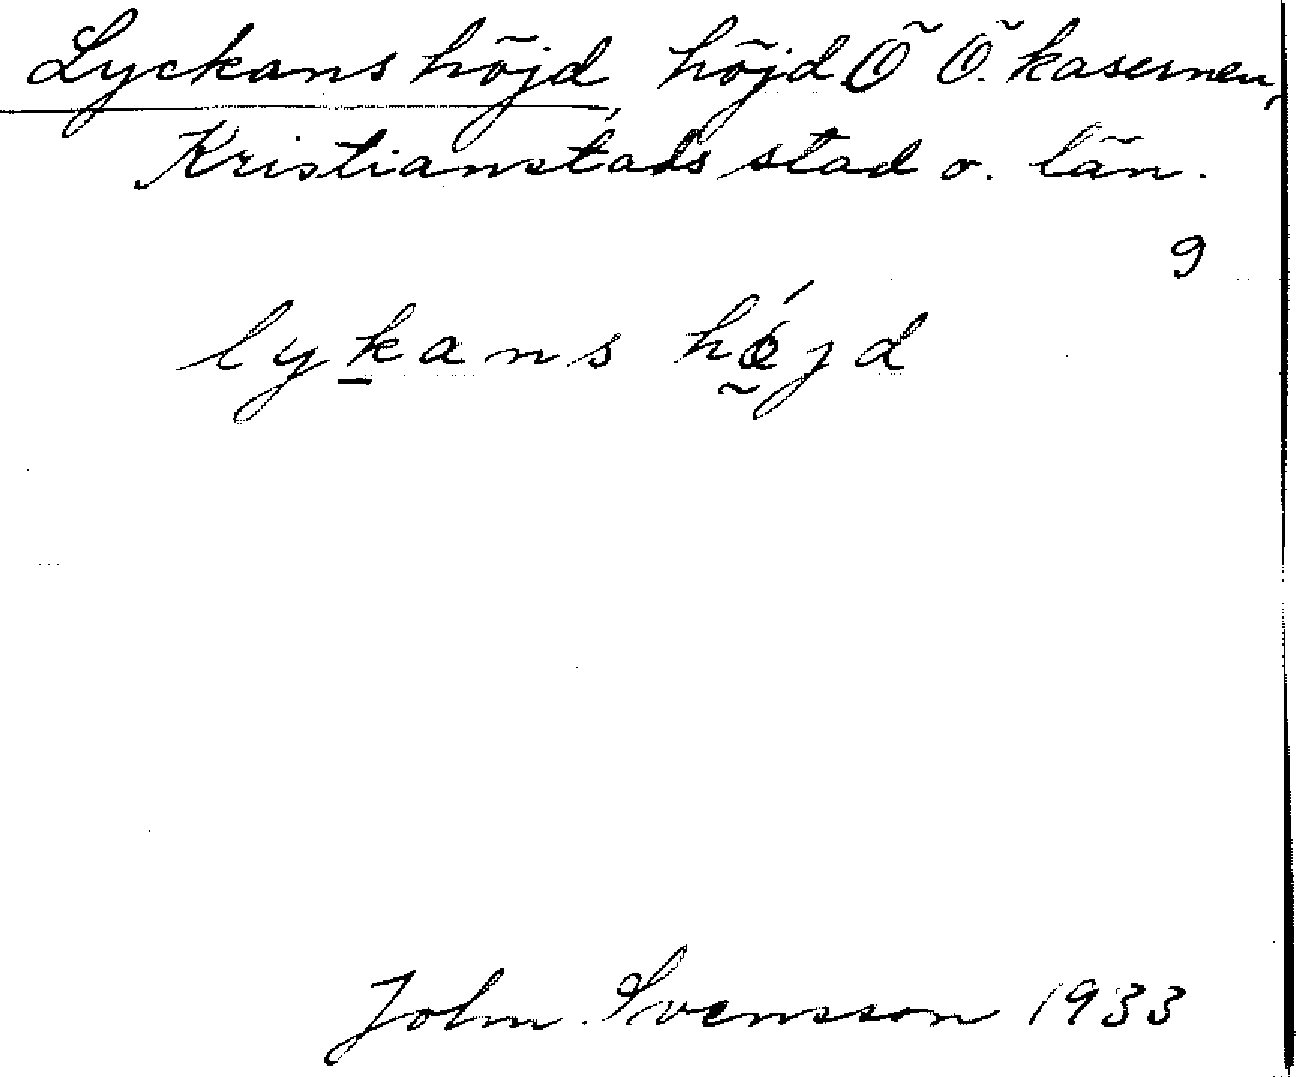 Lyckans höjd, höjd Ö Ö. kasernen,
Kristianstads stad o. län.
9
lykans höjd
John Svensson 1933